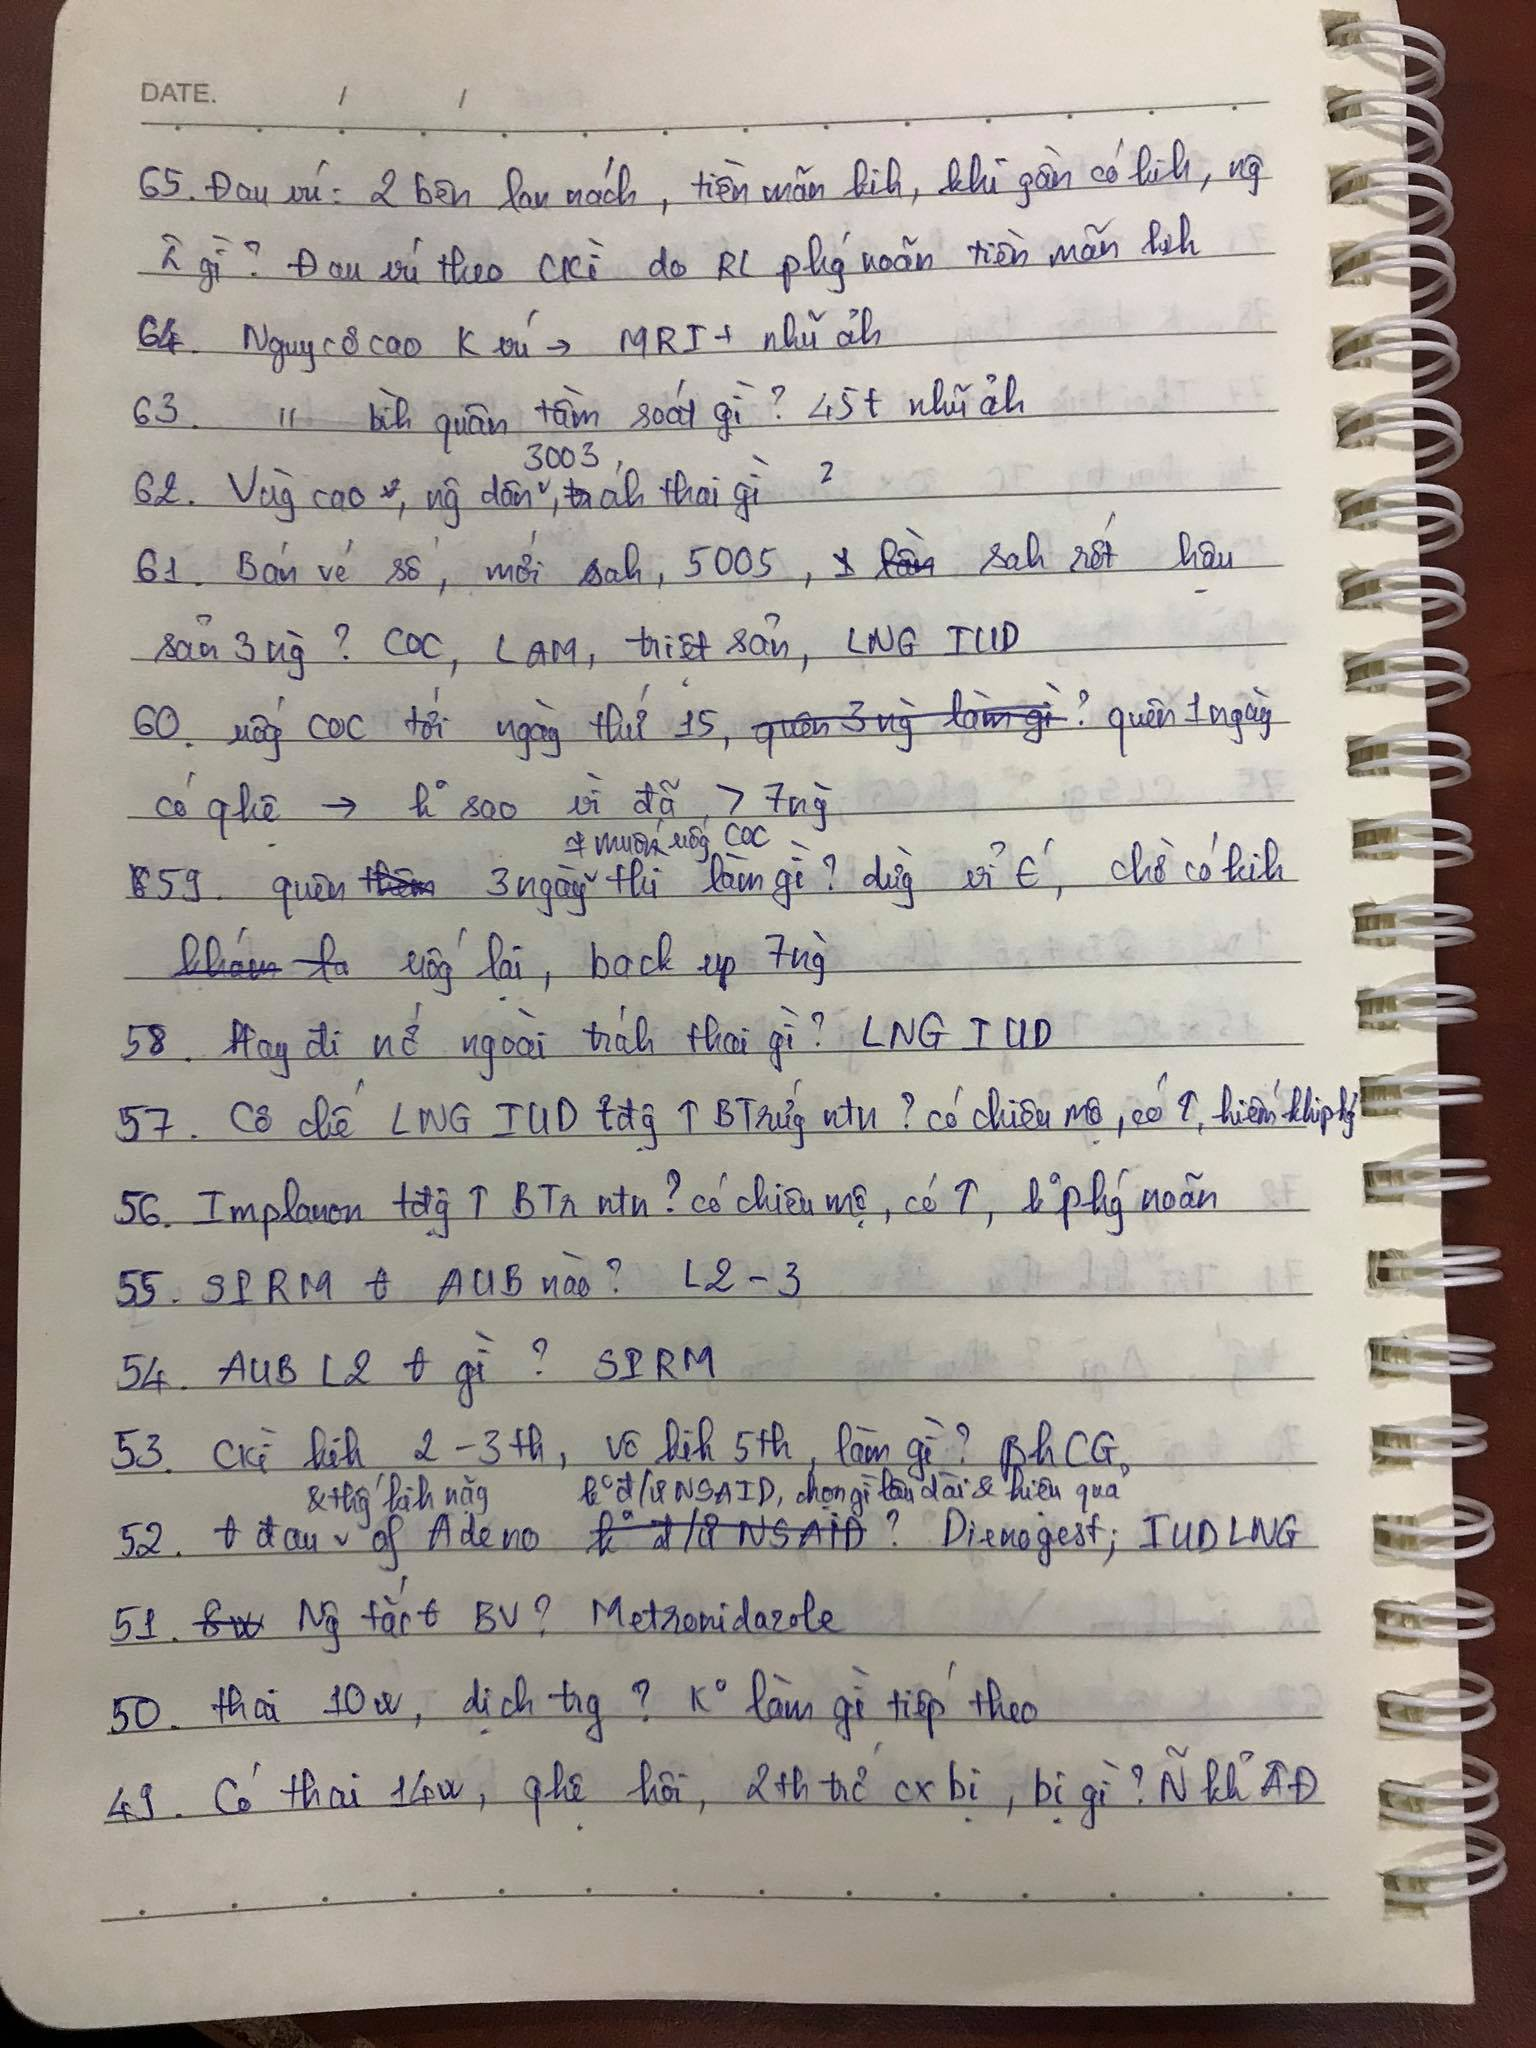 DATE. / /
65. Đau vú: 2 bên lan nách, tiền mãn kih, khi gần có kih, ng
gì? Đau vú theo CKì do RL phg noãn tiền mãn kih
64. Nguy cơ cao K vú → MRI + nhũ ảh
63. " bìh quân tầm soát gì? 45t nhũ ảh
3003,
62. Vùg cao, ng dân, tráh thai gì ?
61. Bán vé số, mới sah, 5005, sah rớt hậu
sản 3 ng? COC, LAM, triệt sản, LNG IUD
60. uốg COC tới ngày thứ 15, quên 3 ng làm gì? quên 1 ngày
có qhệ → k° sao vì đã > 7 ng
muốn uốg COC
59. quên 3 ngày thì làm gì? dừg vỉ, chờ có kih
uốg lại, back up 7 ng
58. Hay đi nc ngoài tráh thai gì? LNG IUD
57. Cơ chế LNG IUD tđg ↑ BTrứg ntn? có chiêu mộ, có ↑, hiếm khi phg
56. Implanon tđg ↑ BTr ntn? có chiêu mộ, có ↑, k° phg noãn
55. SPRM t AUB nào? L2-3
54. AUB L2 t gì? SPRM
53. CKì kih 2-3th, vô kih 5th, làm gì? βhCG
& thg kih nặg k° đ/ư NSAID, chọn gì lâu dài & hiệu quả
52. t đau of Adeno k° đ/ư NSAID? Dienogest; IUD LNG
51. Ng tắc t BV? Metronidazole
50. thai 10w, dịch trg? K° làm gì tiếp theo
49. Có thai 14w, qhệ hôi, 2th trc cx bị, bị gì? Ñ kh ÂĐ